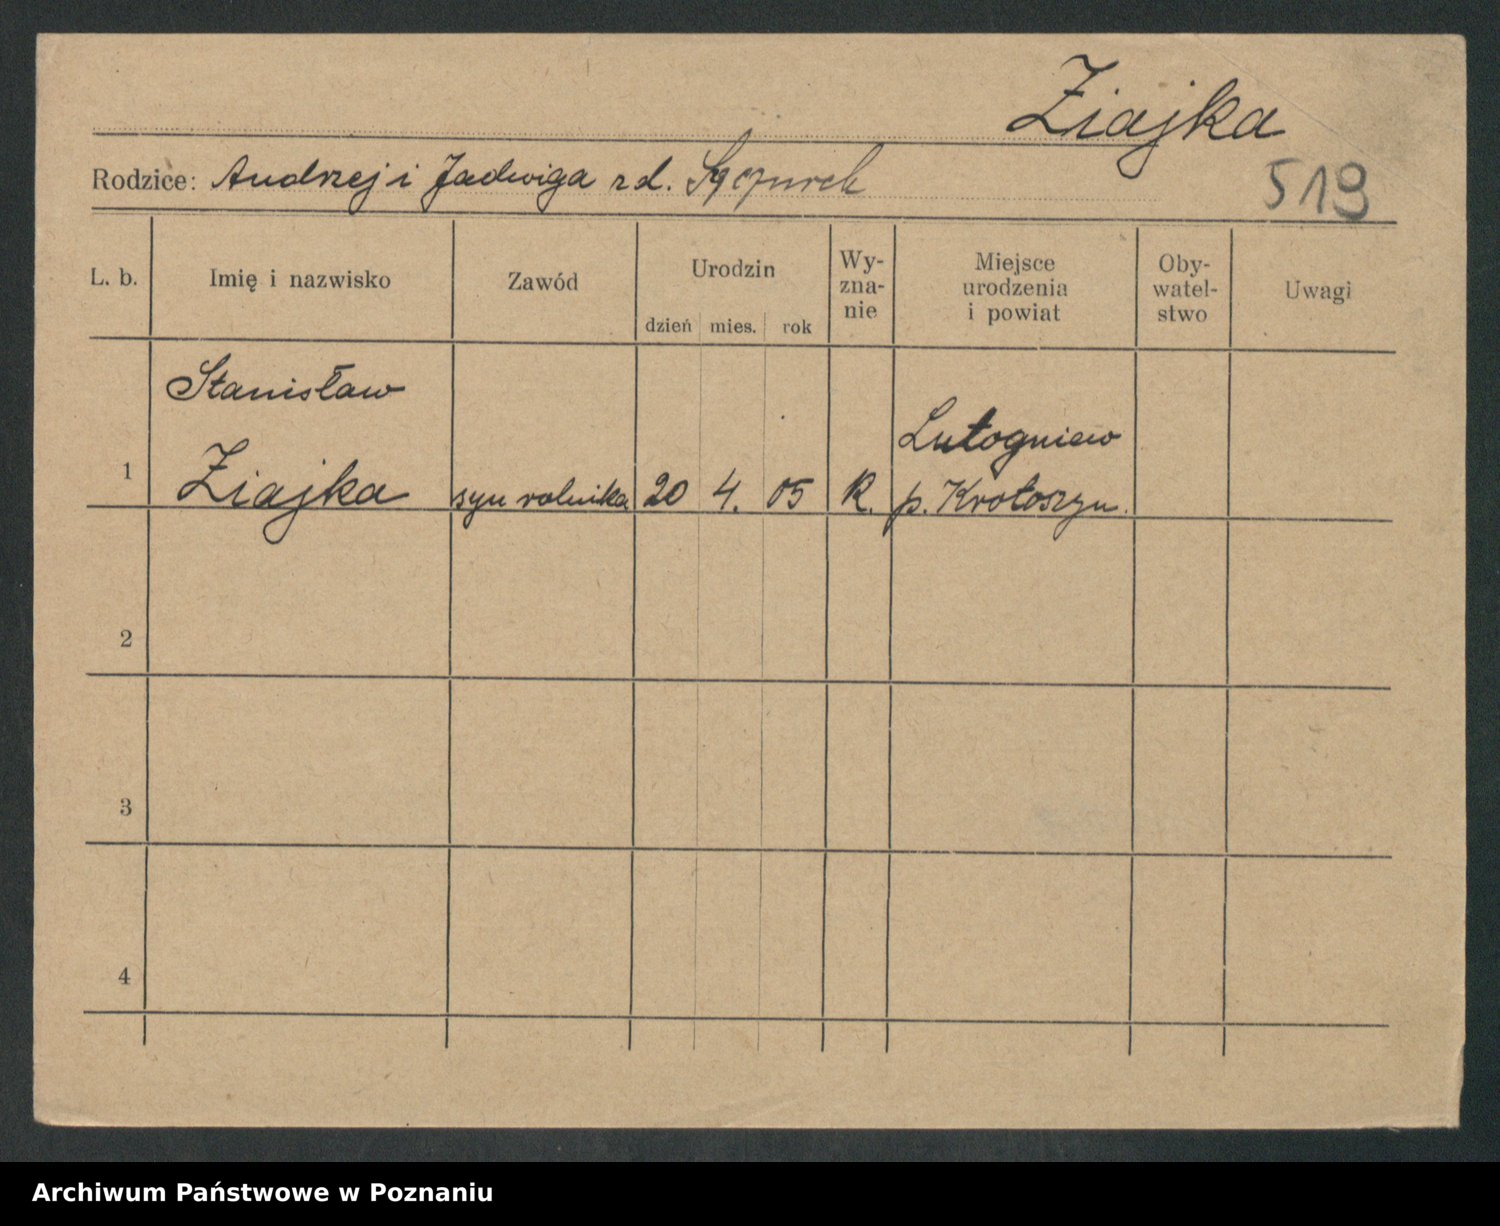 Ziajka
Rodzice: Andrzej i Jadwiga rd.
519
L. b. Imię i nazwisko Zawód Urodzin dzień mies. rok Wy-zna-nie Miejsce urodzenia i powiat Oby-watel-stwo Uwagi
Stanisław
1 Ziajka syn rolnika 20 4. 05 R. Lutogniew
p. Krotoszyn.
2
3
4
Archiwum Państwowe w Poznaniu